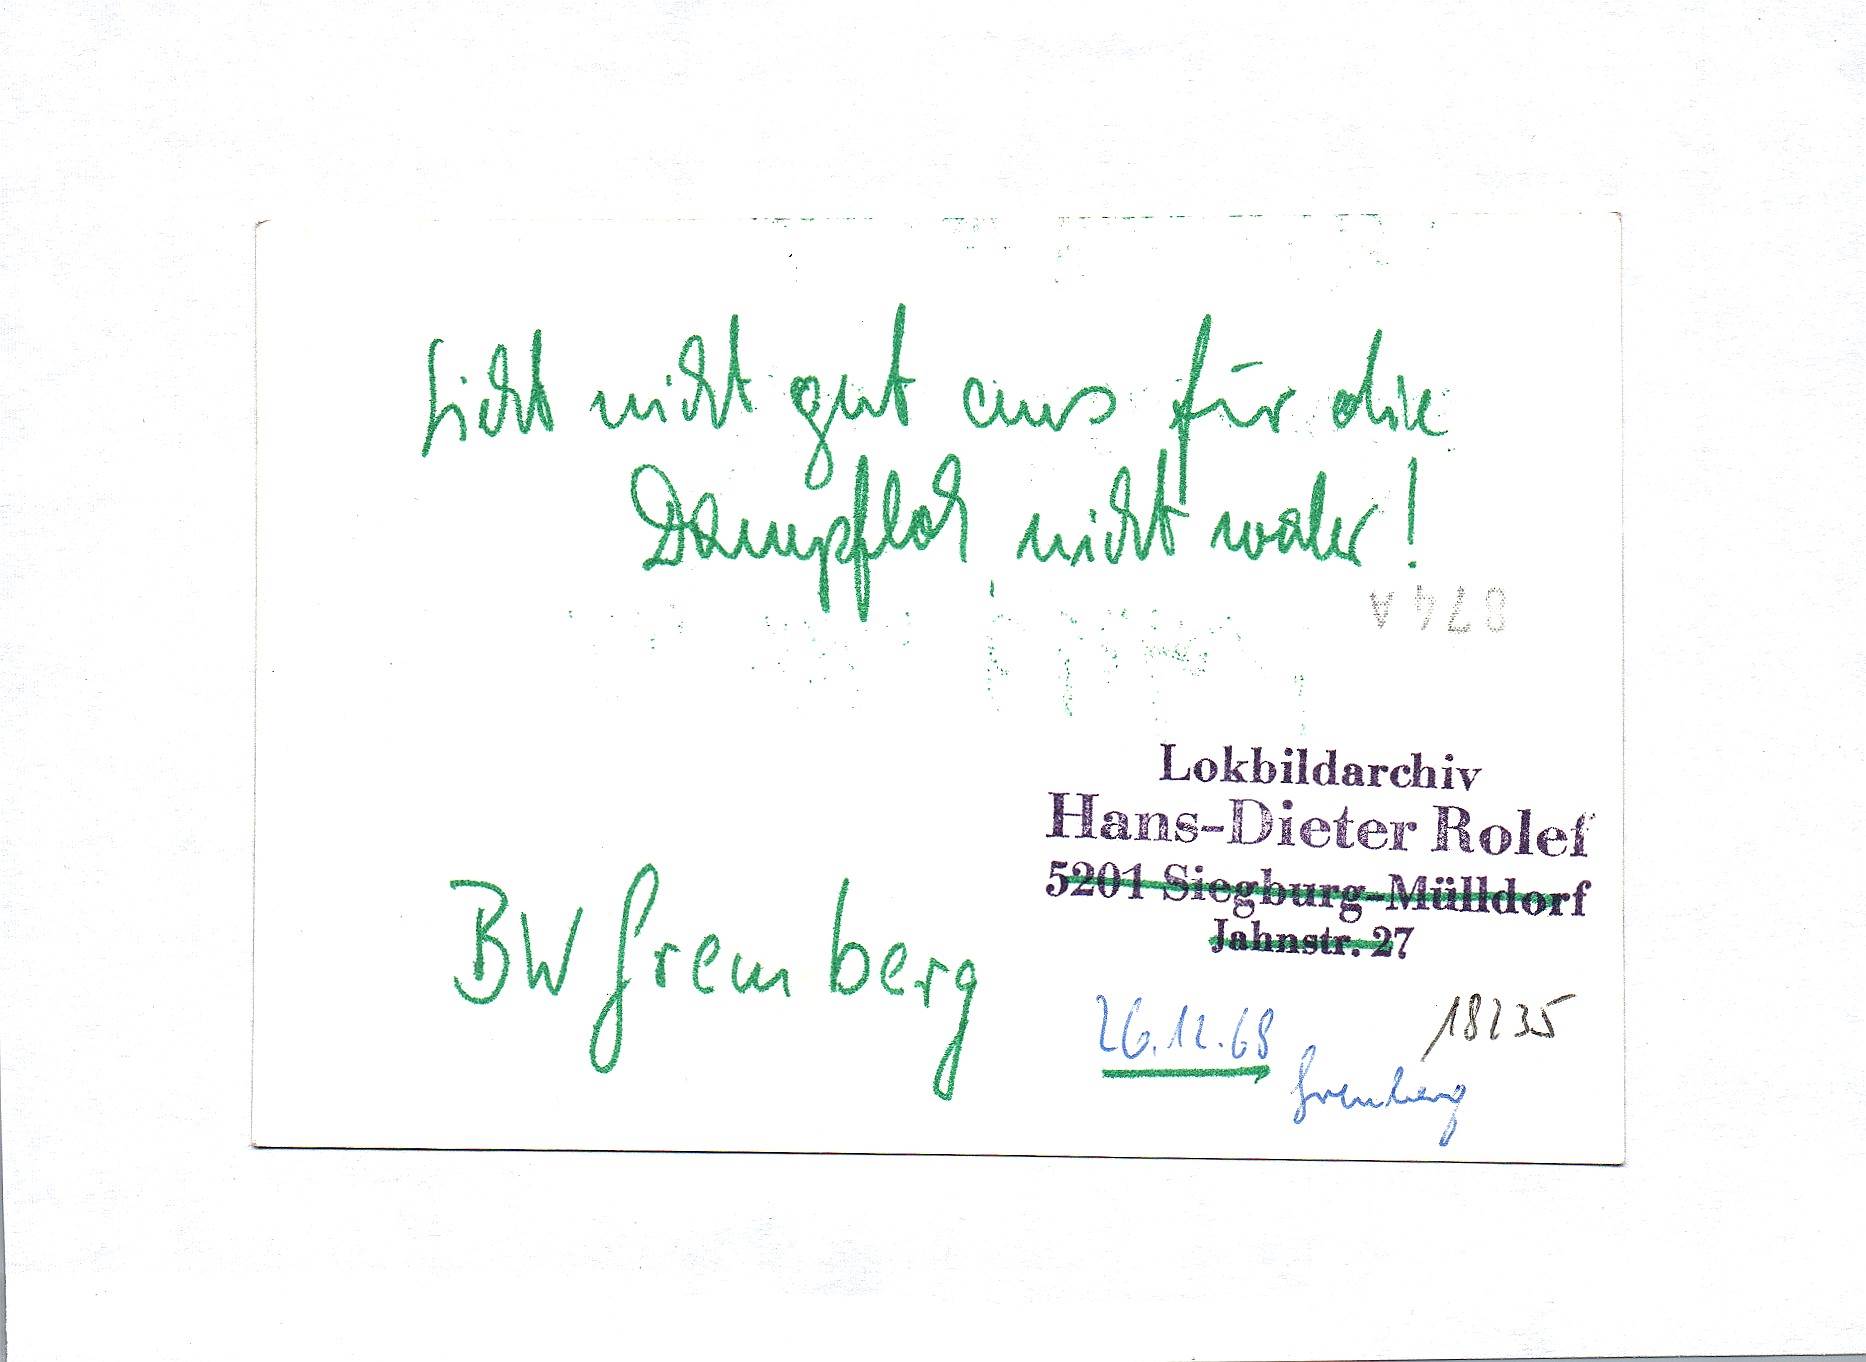 Sieht nicht gut aus für die
Dampflok, nicht wahr!
874 A
Lokbildarchiv
Hans-Dieter Rolef
5201 Siegburg-Mülldorf
Jahnstr. 27
BW Gremberg
26.12.68
18235
Gremberg